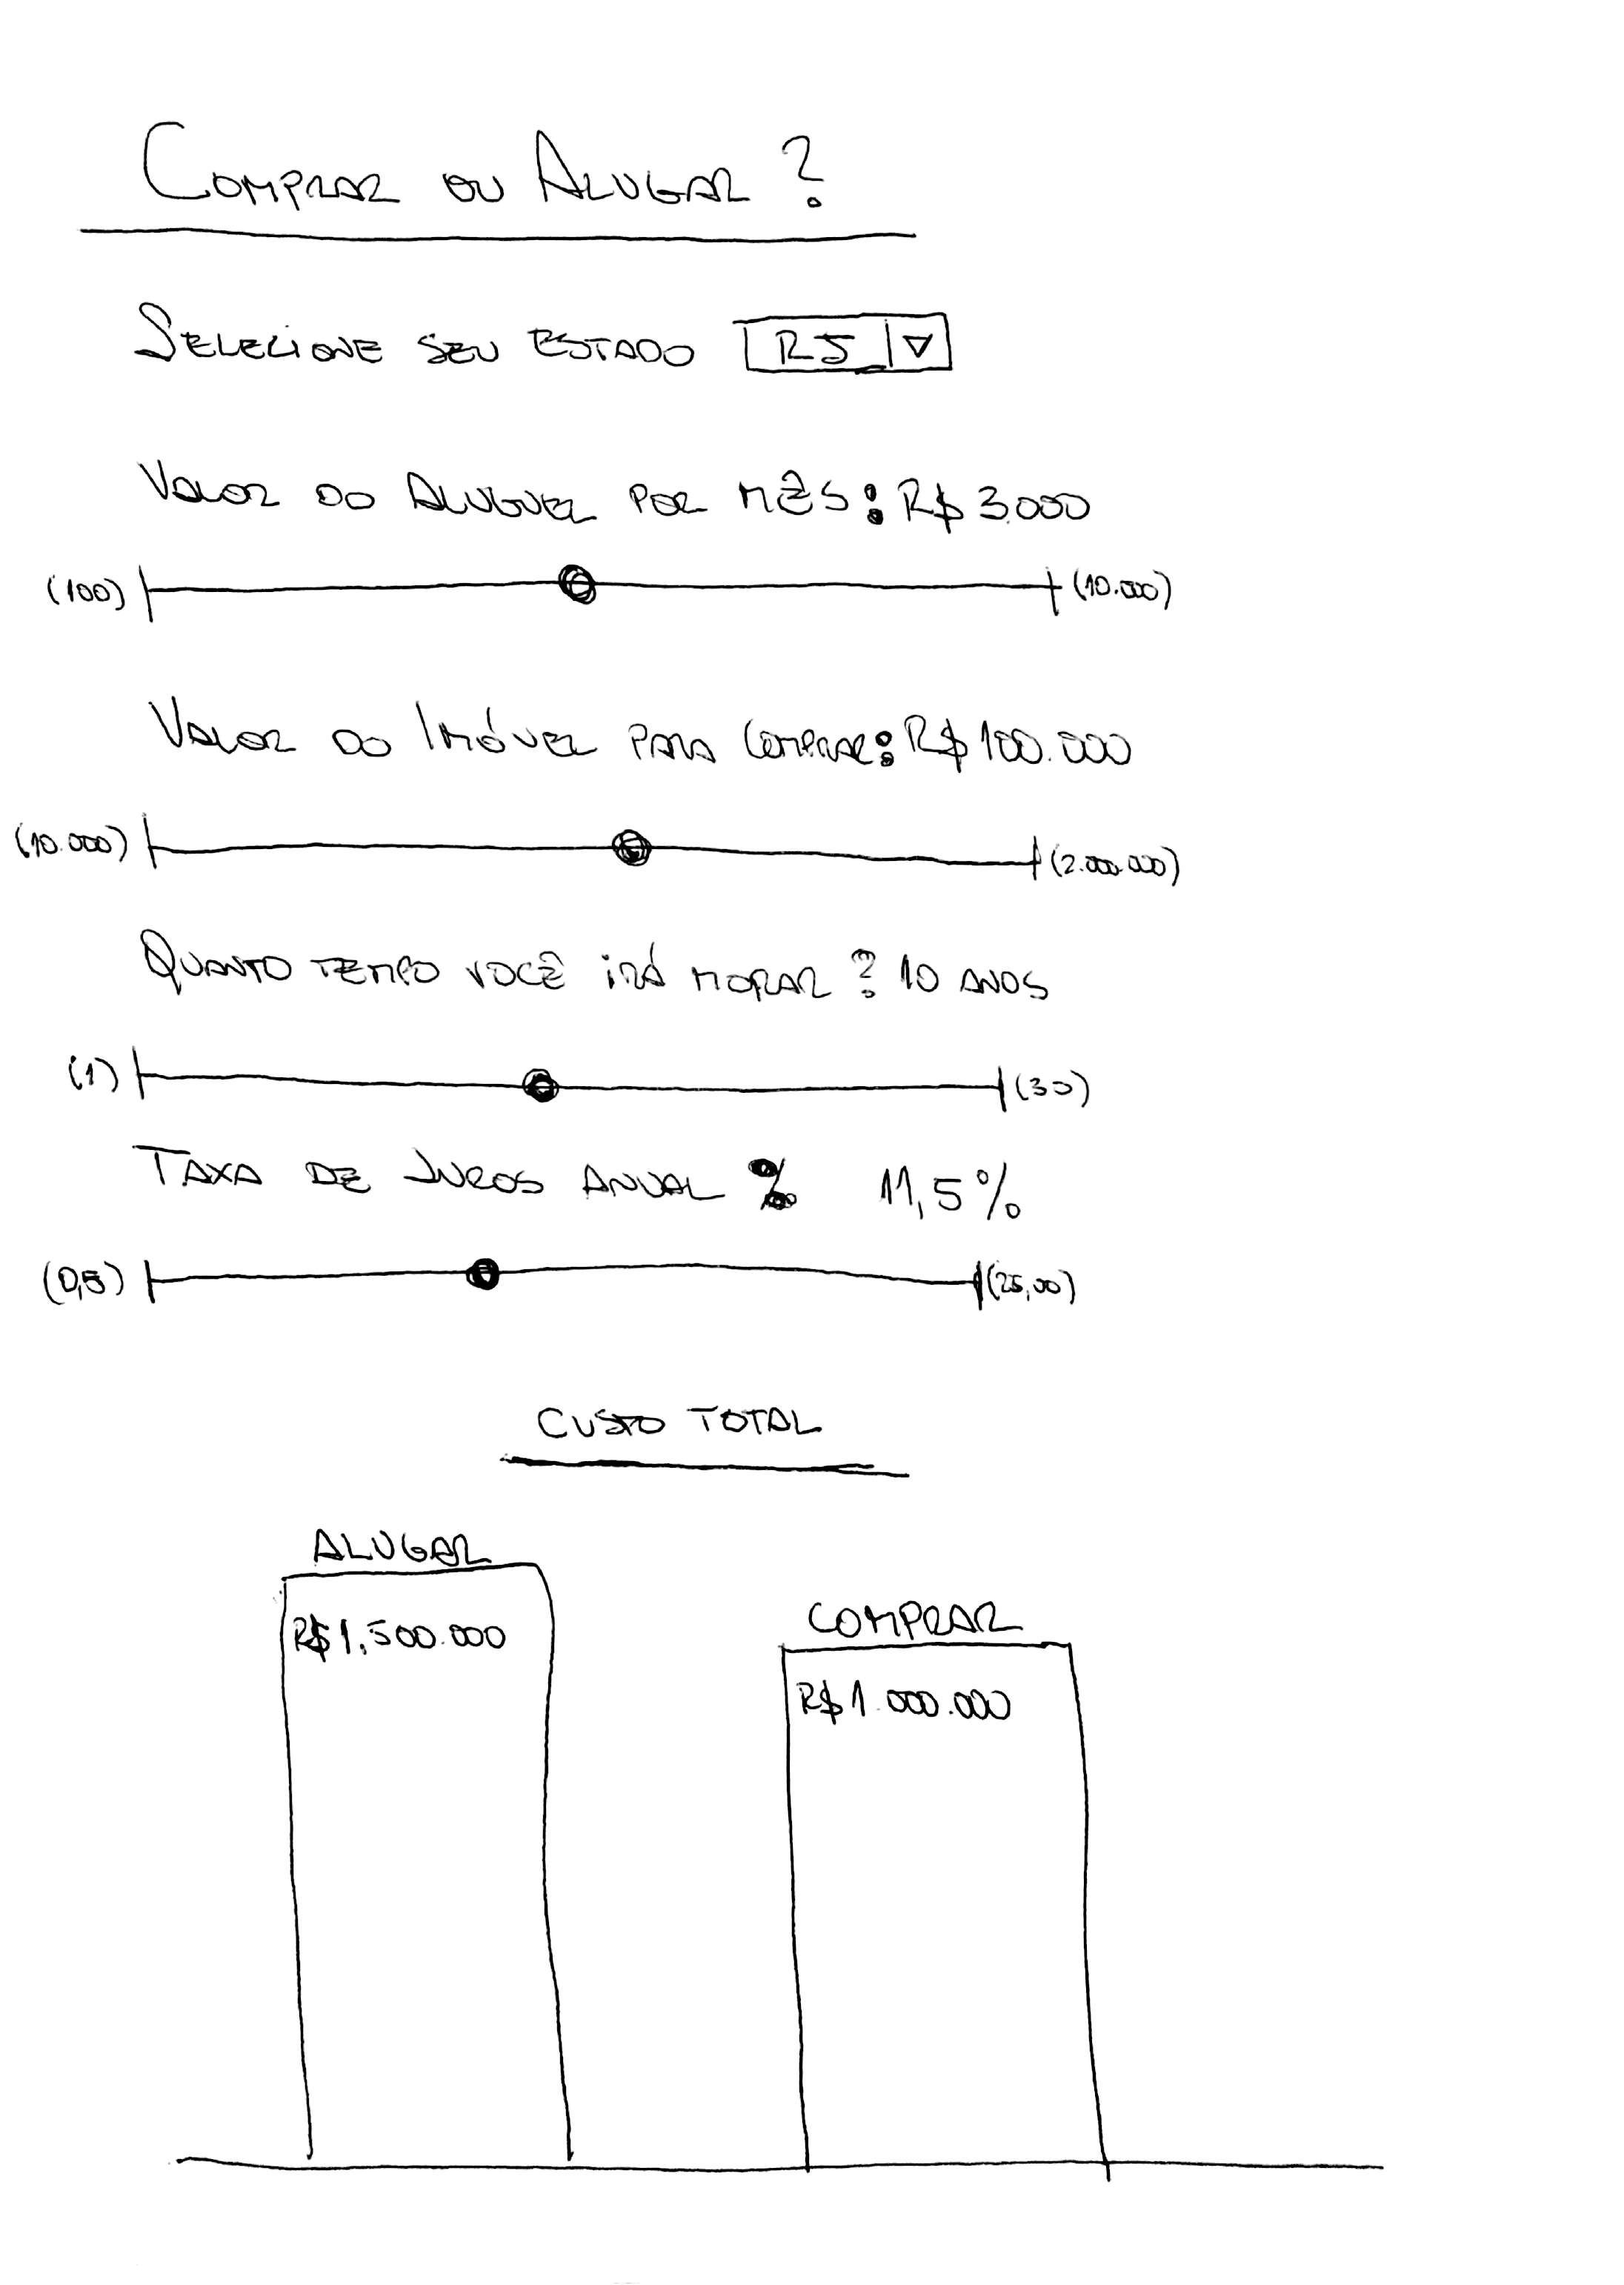 COMPRAR OU ALUGAR ?
SELECIONE SEU ESTADO RJ
VALOR DO ALUGUEL POR MÊS: R$ 3.000
(100) (10.000)
VALOR DO IMÓVEL PARA COMPRAR: R$ 100.000
(10.000) (2.000.000)
QUANTO TEMPO VOCÊ IRÁ MORAR ? 10 ANOS
(1) (30)
TAXA DE JUROS ANUAL % 11,5%
(0,5) (25,00)
CUSTO TOTAL
ALUGAR
R$ 1.500.000
COMPRAR
R$ 1.000.000